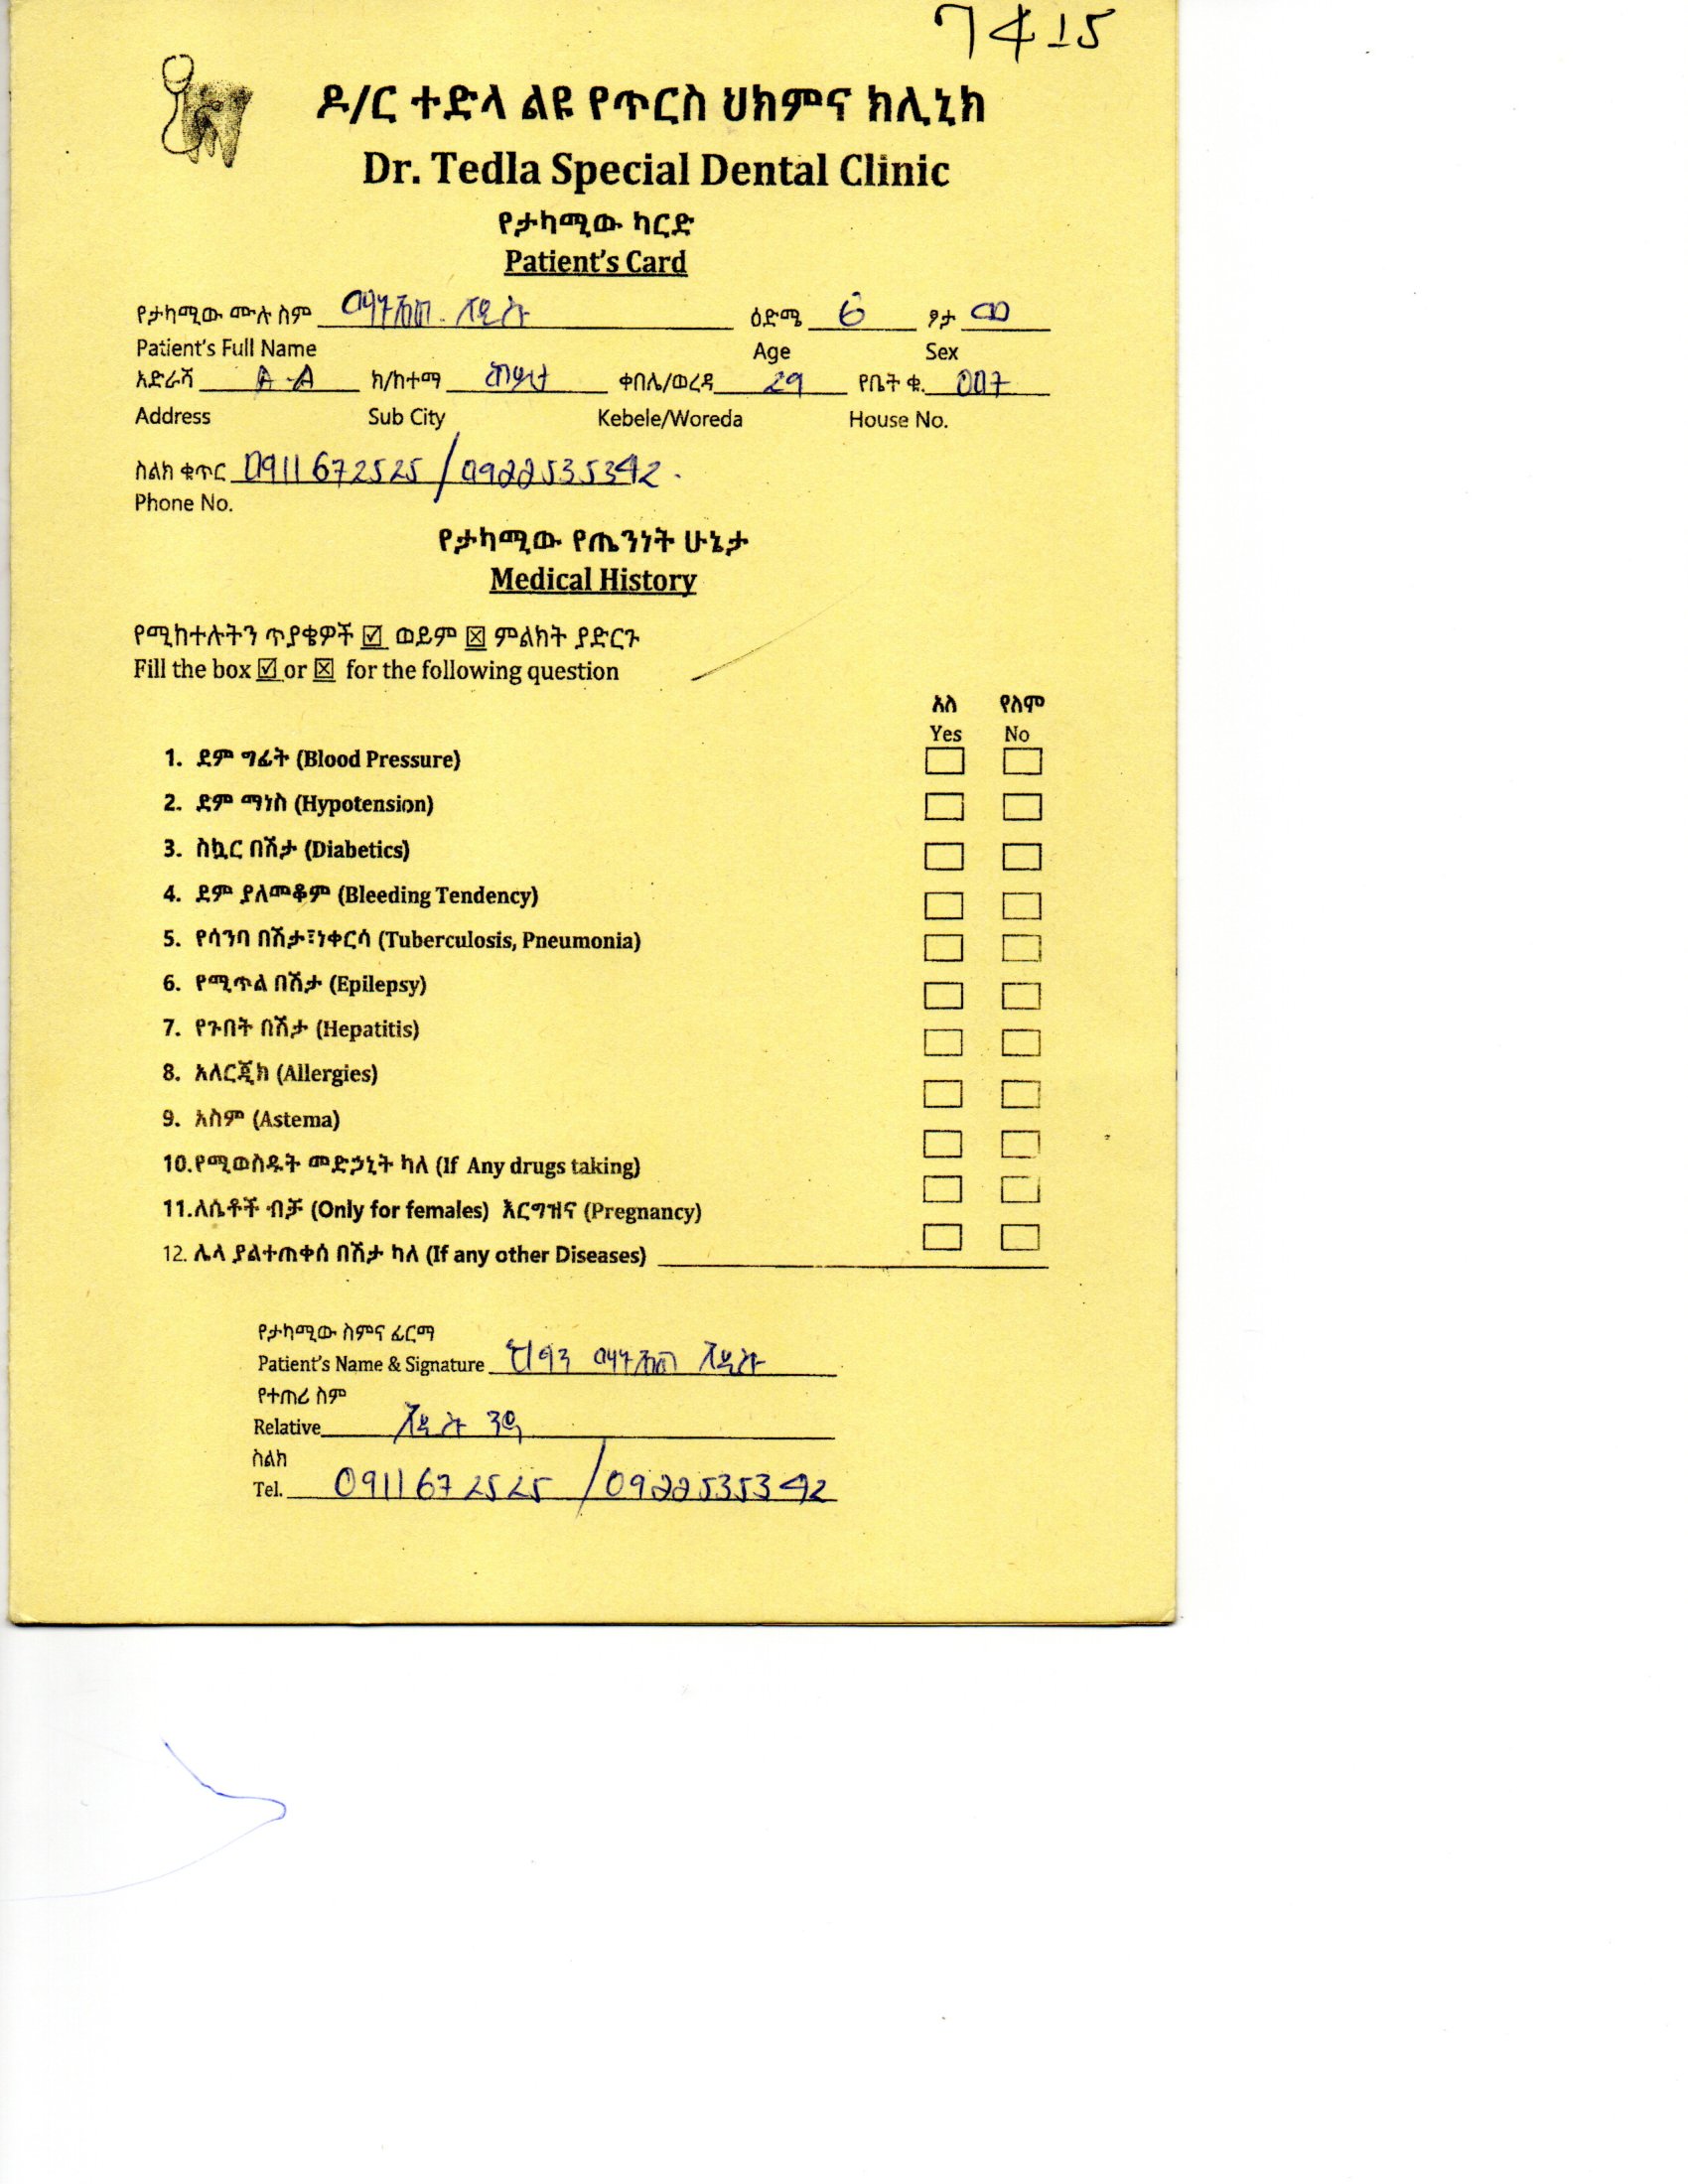 7415
ዶ/ር ተድላ ልዩ የጥርስ ህክምና ክሊኒክ
Dr. Tedla Special Dental Clinic
የታካሚው ካርድ
Patient's Card
የታካሚው ሙሉ ስም ዕድሜ 6 ፆታ ወ
Patient's Full Name Age Sex
አድራሻ A.A ክ/ከተማ ቀበሌ/ወረዳ 29 የቤት ቁ.
Address Sub City Kebele/Woreda House No.
ስልክ ቁጥር 0911672525 / 0922535342
Phone No.
የታካሚው የጤንነት ሁኔታ
Medical History
የሚከተሉትን ጥያቄዎች ☑ ወይም ☒ ምልክት ያድርጉ
Fill the box ☑ or ☒ for the following question
አለ የለም
Yes No
1. ደም ግፊት (Blood Pressure)
2. ደም ማነስ (Hypotension)
3. ስኳር በሽታ (Diabetics)
4. ደም ያለመቆም (Bleeding Tendency)
5. የሳንባ በሽታ፣ነቀርሳ (Tuberculosis, Pneumonia)
6. የሚጥል በሽታ (Epilepsy)
7. የጉበት በሽታ (Hepatitis)
8. አለርጂክ (Allergies)
9. አስም (Astema)
10.የሚወስዱት መድኃኒት ካለ (If Any drugs taking)
11.ለሴቶች ብቻ (Only for females) እርግዝና (Pregnancy)
12. ሌላ ያልተጠቀሰ በሽታ ካለ (If any other Diseases)
የታካሚው ስምና ፊርማ
Patient's Name & Signature
የተጠሪ ስም
Relative
ስልክ
Tel. 0911672525 / 0922535342